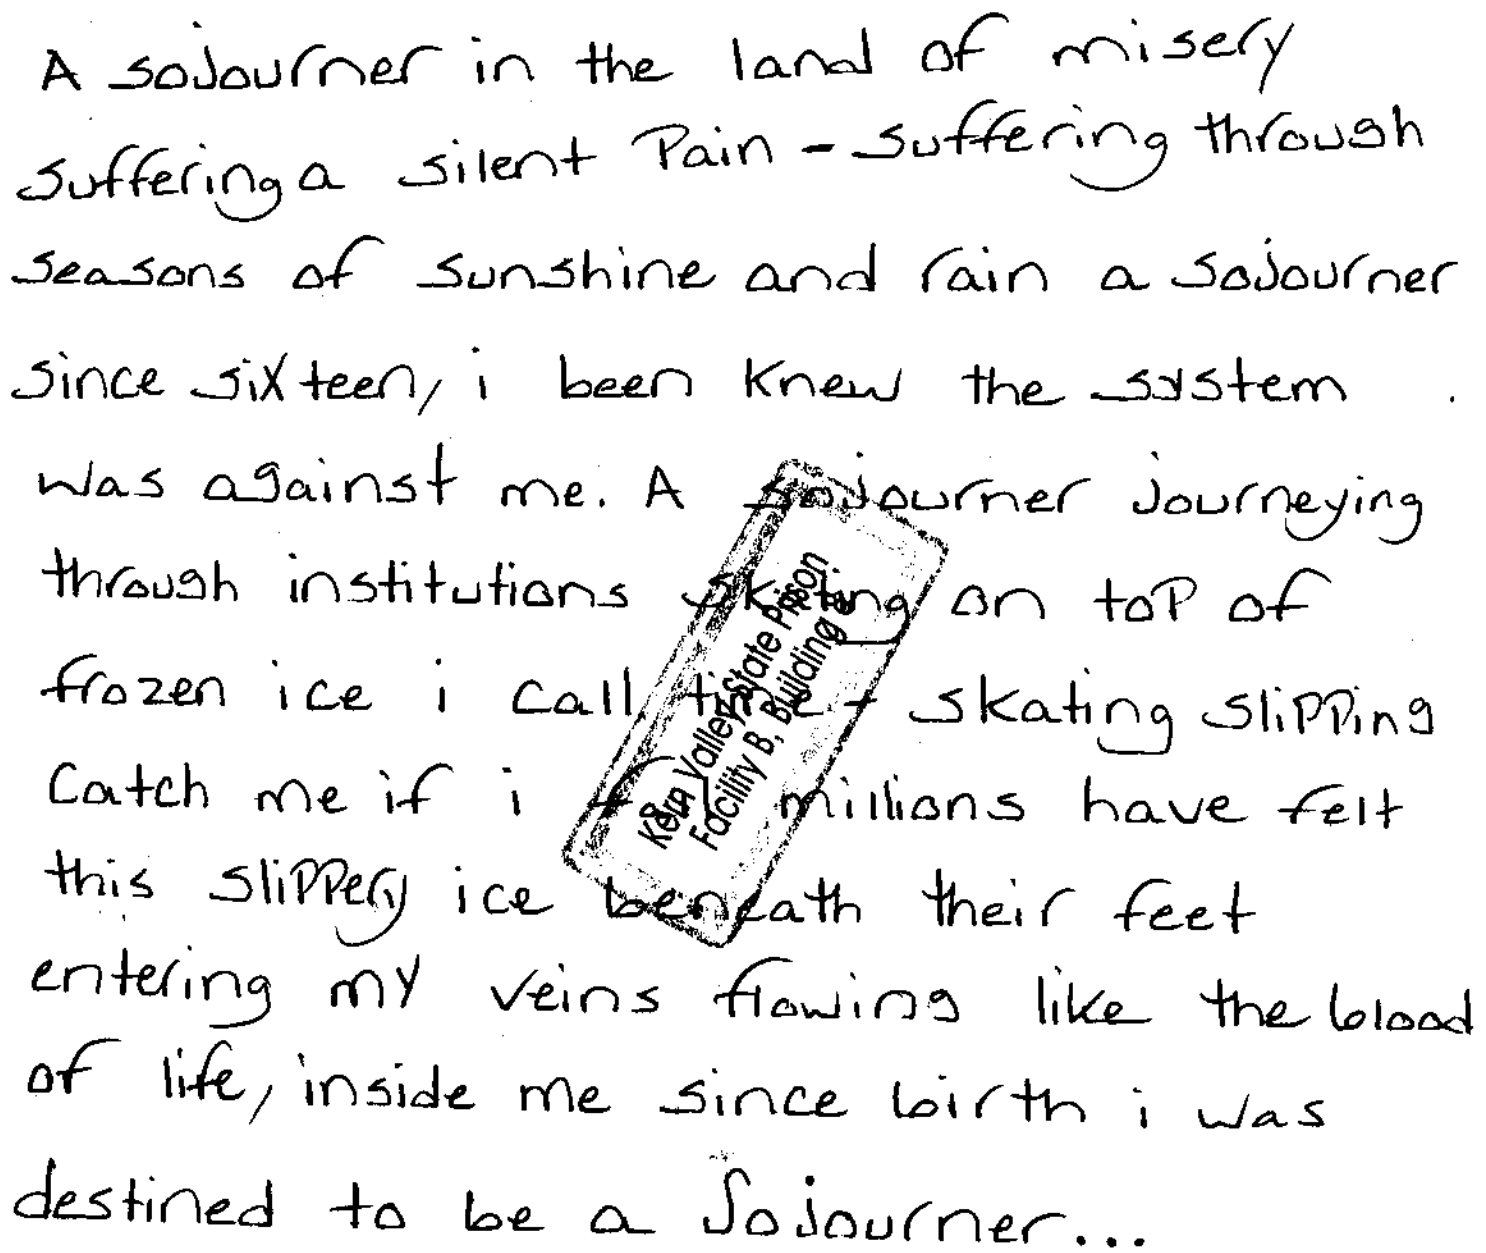 A sojourner in the land of misery
suffering a silent Pain - suffering through
seasons of sunshine and rain a sojourner
since sixteen, i been knew the system
was against me. A sojourner journeying
through institutions skating on top of
frozen ice i call time - skating slipping
Catch me if i millions have felt
this slippery ice beneath their feet
entering my veins flowing like the blood
of life, inside me since birth i was
destined to be a Sojourner...
Kern Valley State Prison
Facility B, Building